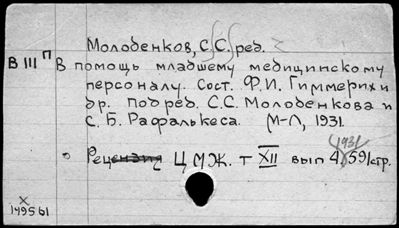 Молоденков, С.С. ред.
В III П В помощь младшему медицинскому
персоналу. Сост. Ф.И. Гиммерих и
др. Под ред. С.С. Молоденкова и
С.Б. Рафалькеса. М-Л, 1931.
Рецензия Ц М Ж. т XII вып 4, 59/стр.
1931
X
149561